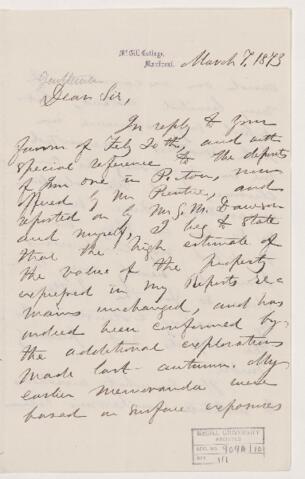 McGill College,
Montreal.
March 7, 1873
Gentlemen
Dear Sir,
In reply to your
favour of Feby 20th, and with
special reference to the deposits
of iron ore in Pictou, now
offered by Mr. Prentice, and
reported on by Mr G. M. Dawson
and myself, I beg to state
that the high estimate of
the value of the property
expressed in my reports re-
mains unchanged, and has
indeed been confirmed by
the additional explorations
made last autumn. My
earlier memoranda were
based on surface exposures
McGILL UNIVERSITY
ARCHIVES
ACC. NO. 909A/10
REF. 1/1